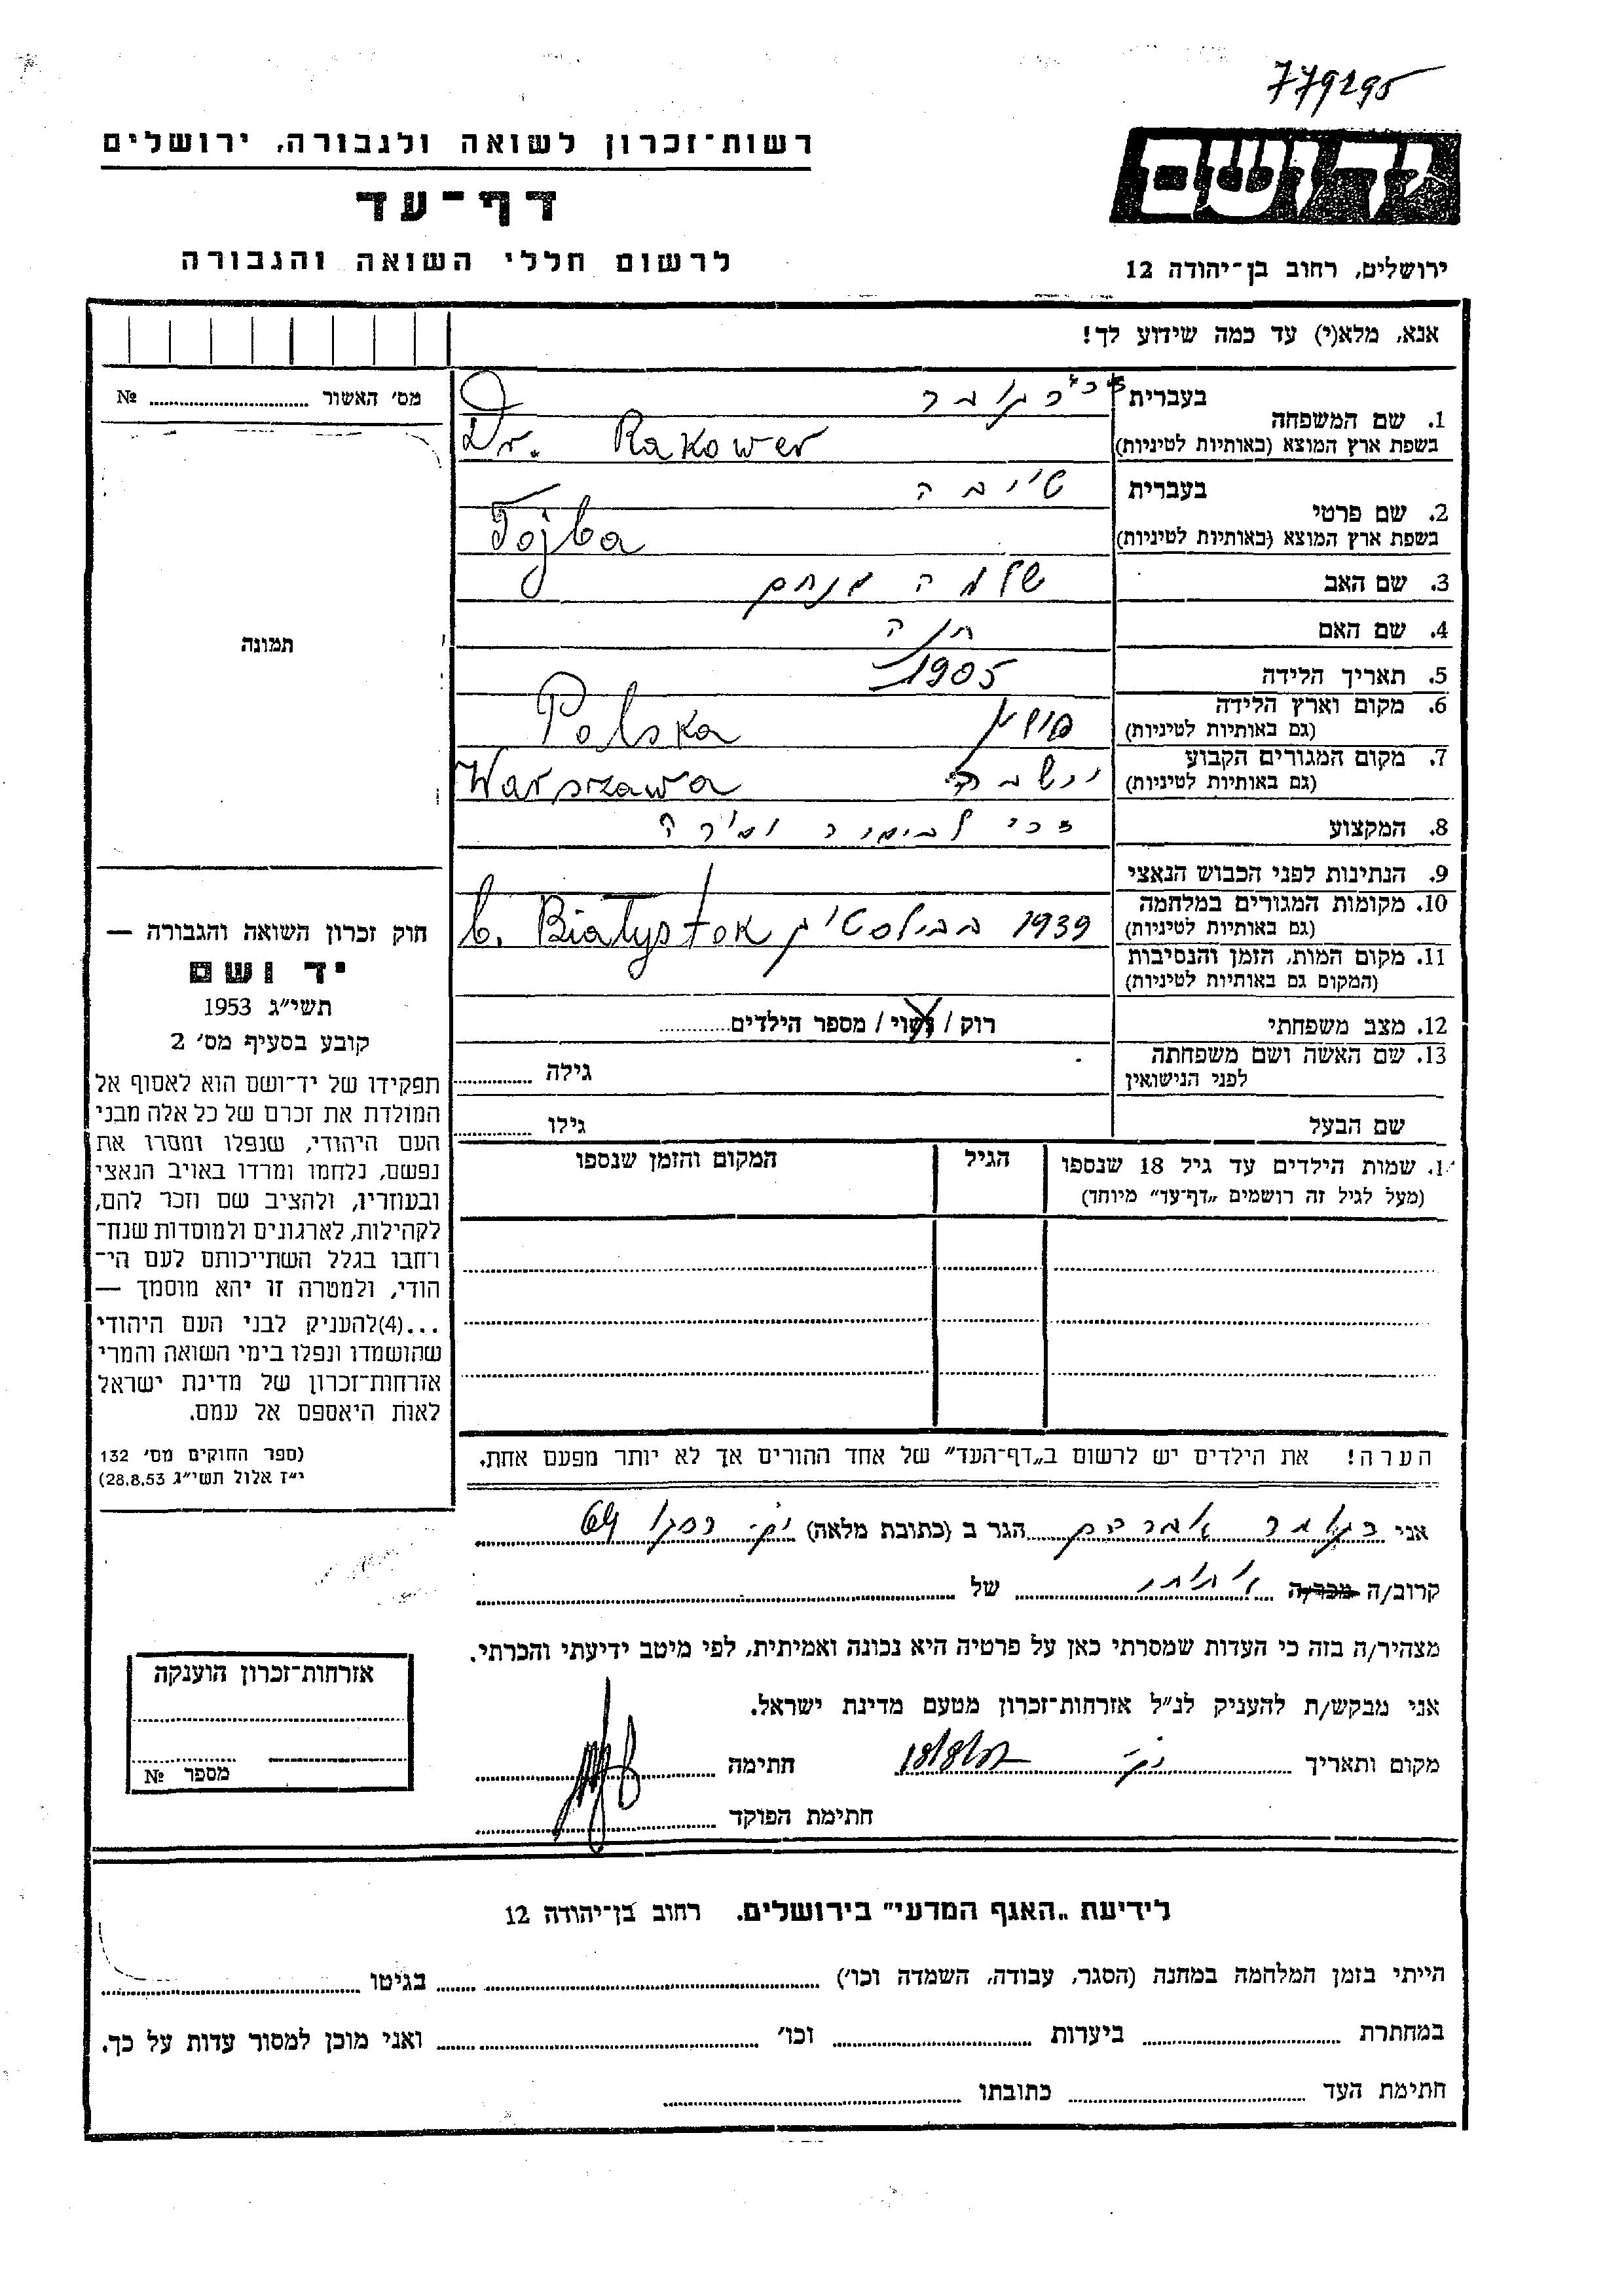 779295
רשות־זכרון לשואה ולגבורה, ירושלים
יד ושם
דף־עד
לרשום חללי השואה והגבורה
ירושלים, רחוב בן־יהודה 12
אנא, מלא(י) עד כמה שידוע לך!
מס׳ האשור № 
1. שם המשפחה בעברית רקובר
בשפת ארץ המוצא (באותיות לטיניות) Dr. Rakower
2. שם פרטי בעברית טויבה
בשפת ארץ המוצא (באותיות לטיניות) Tojba
3. שם האב שלמה מנחם
4. שם האם חנה
5. תאריך הלידה 1905
6. מקום וארץ הלידה פולין Polska
(גם באותיות לטיניות)
7. מקום המגורים הקבוע ורשבה Warszawa
(גם באותיות לטיניות)
8. המקצוע
9. הנתינות לפני הכבוש הנאצי
10. מקומות המגורים במלחמה 1939 בביאלסטוק b. Białystok
(גם באותיות לטיניות)
11. מקום המות, הזמן והנסיבות
(המקום גם באותיות לטיניות)
12. מצב משפחתי רוק / נשוי / מספר הילדים
13. שם האשה ושם משפחתה גילה
לפני הנישואין
שם הבעל גילו
שמות הילדים עד גיל 18 שנספו הגיל המקום והזמן שנספו
(מעל לגיל זה רושמים „דף־עד״ מיוחד)
הערה! את הילדים יש לרשום ב„דף־העד״ של אחד ההורים אך לא יותר מפעם אחת.
תמונה
חוק זכרון השואה והגבורה —
יד ושם
תשי״ג 1953
קובע בסעיף מס׳ 2
תפקידו של יד־ושם הוא לאסוף אל
המולדת את זכרם של כל אלה מבני
העם היהודי, שנפלו ומסרו את
נפשם, נלחמו ומרדו באויב הנאצי
ובעוזריו, ולהציב שם וזכר להם,
לקהילות, לארגונים ולמוסדות שנח־
רחבו בגלל השתייכותם לעם הי־
הודי, ולמטרה זו יהא מוסמך —
...(4)להעניק לבני העם היהודי
שהושמדו ונפלו בימי השואה והמרי
אזרחות־זכרון של מדינת ישראל
לאות היאספם אל עמם.
(ספר החוקים מס׳ 132
י״ז אלול תשי״ג 28.8.53)
אני רקובר אברהם הגר ב (כתובת מלאה) 64
קרוב/ה מכר/ה אחותי של
מצהיר/ה בזה כי העדות שמסרתי כאן על פרטיה היא נכונה ואמיתית, לפי מיטב ידיעתי והכרתי.
אני מבקש/ת להעניק לנ״ל אזרחות־זכרון מטעם מדינת ישראל.
מקום ותאריך חתימה
חתימת הפוקד
אזרחות־זכרון הוענקה
מספר №
לידיעת „האגף המדעי״ בירושלים. רחוב בן־יהודה 12
הייתי בזמן המלחמה במחנה (הסגר, עבודה, השמדה וכו׳) בגיטו
במחתרת ביערות וכו׳ ואני מוכן למסור עדות על כך.
חתימת העד כתובתו